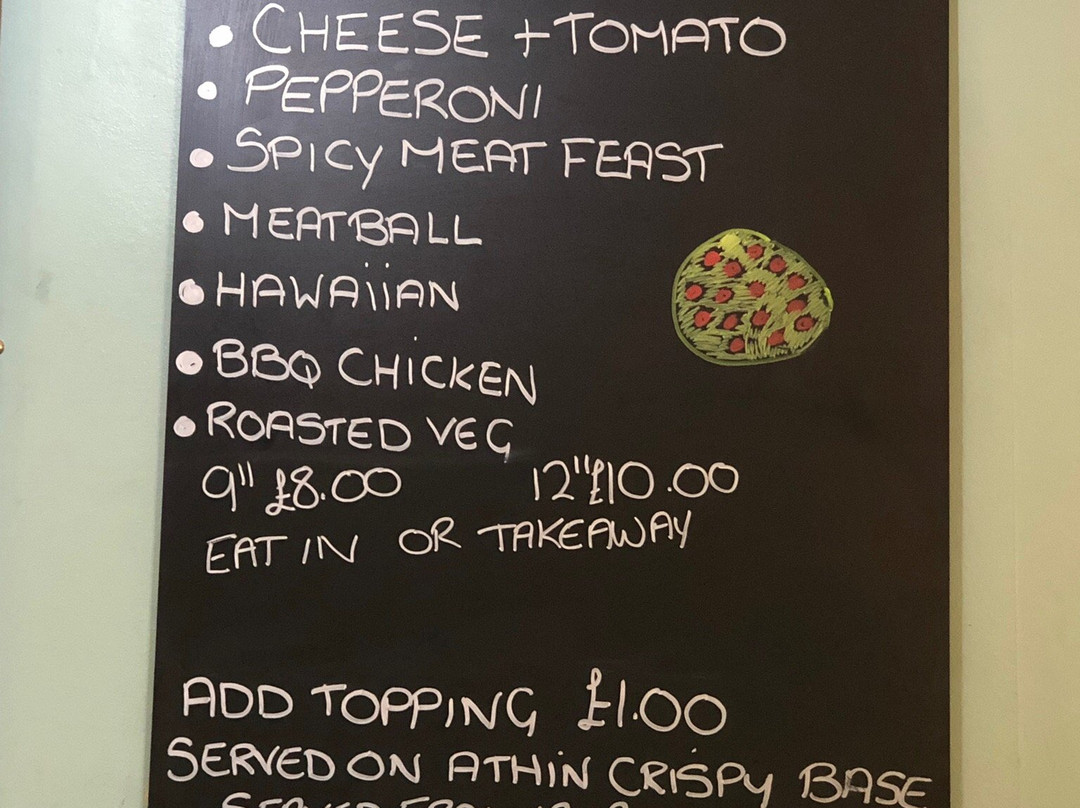 • CHEESE + TOMATO
• PEPPERONI
• SPICY MEAT FEAST
• MEATBALL
• HAWAIIAN
• BBQ CHICKEN
• ROASTED VEG
9" £8.00 12" £10.00
EAT IN OR TAKEAWAY
ADD TOPPING £1.00
SERVED ON A THIN CRISPY BASE